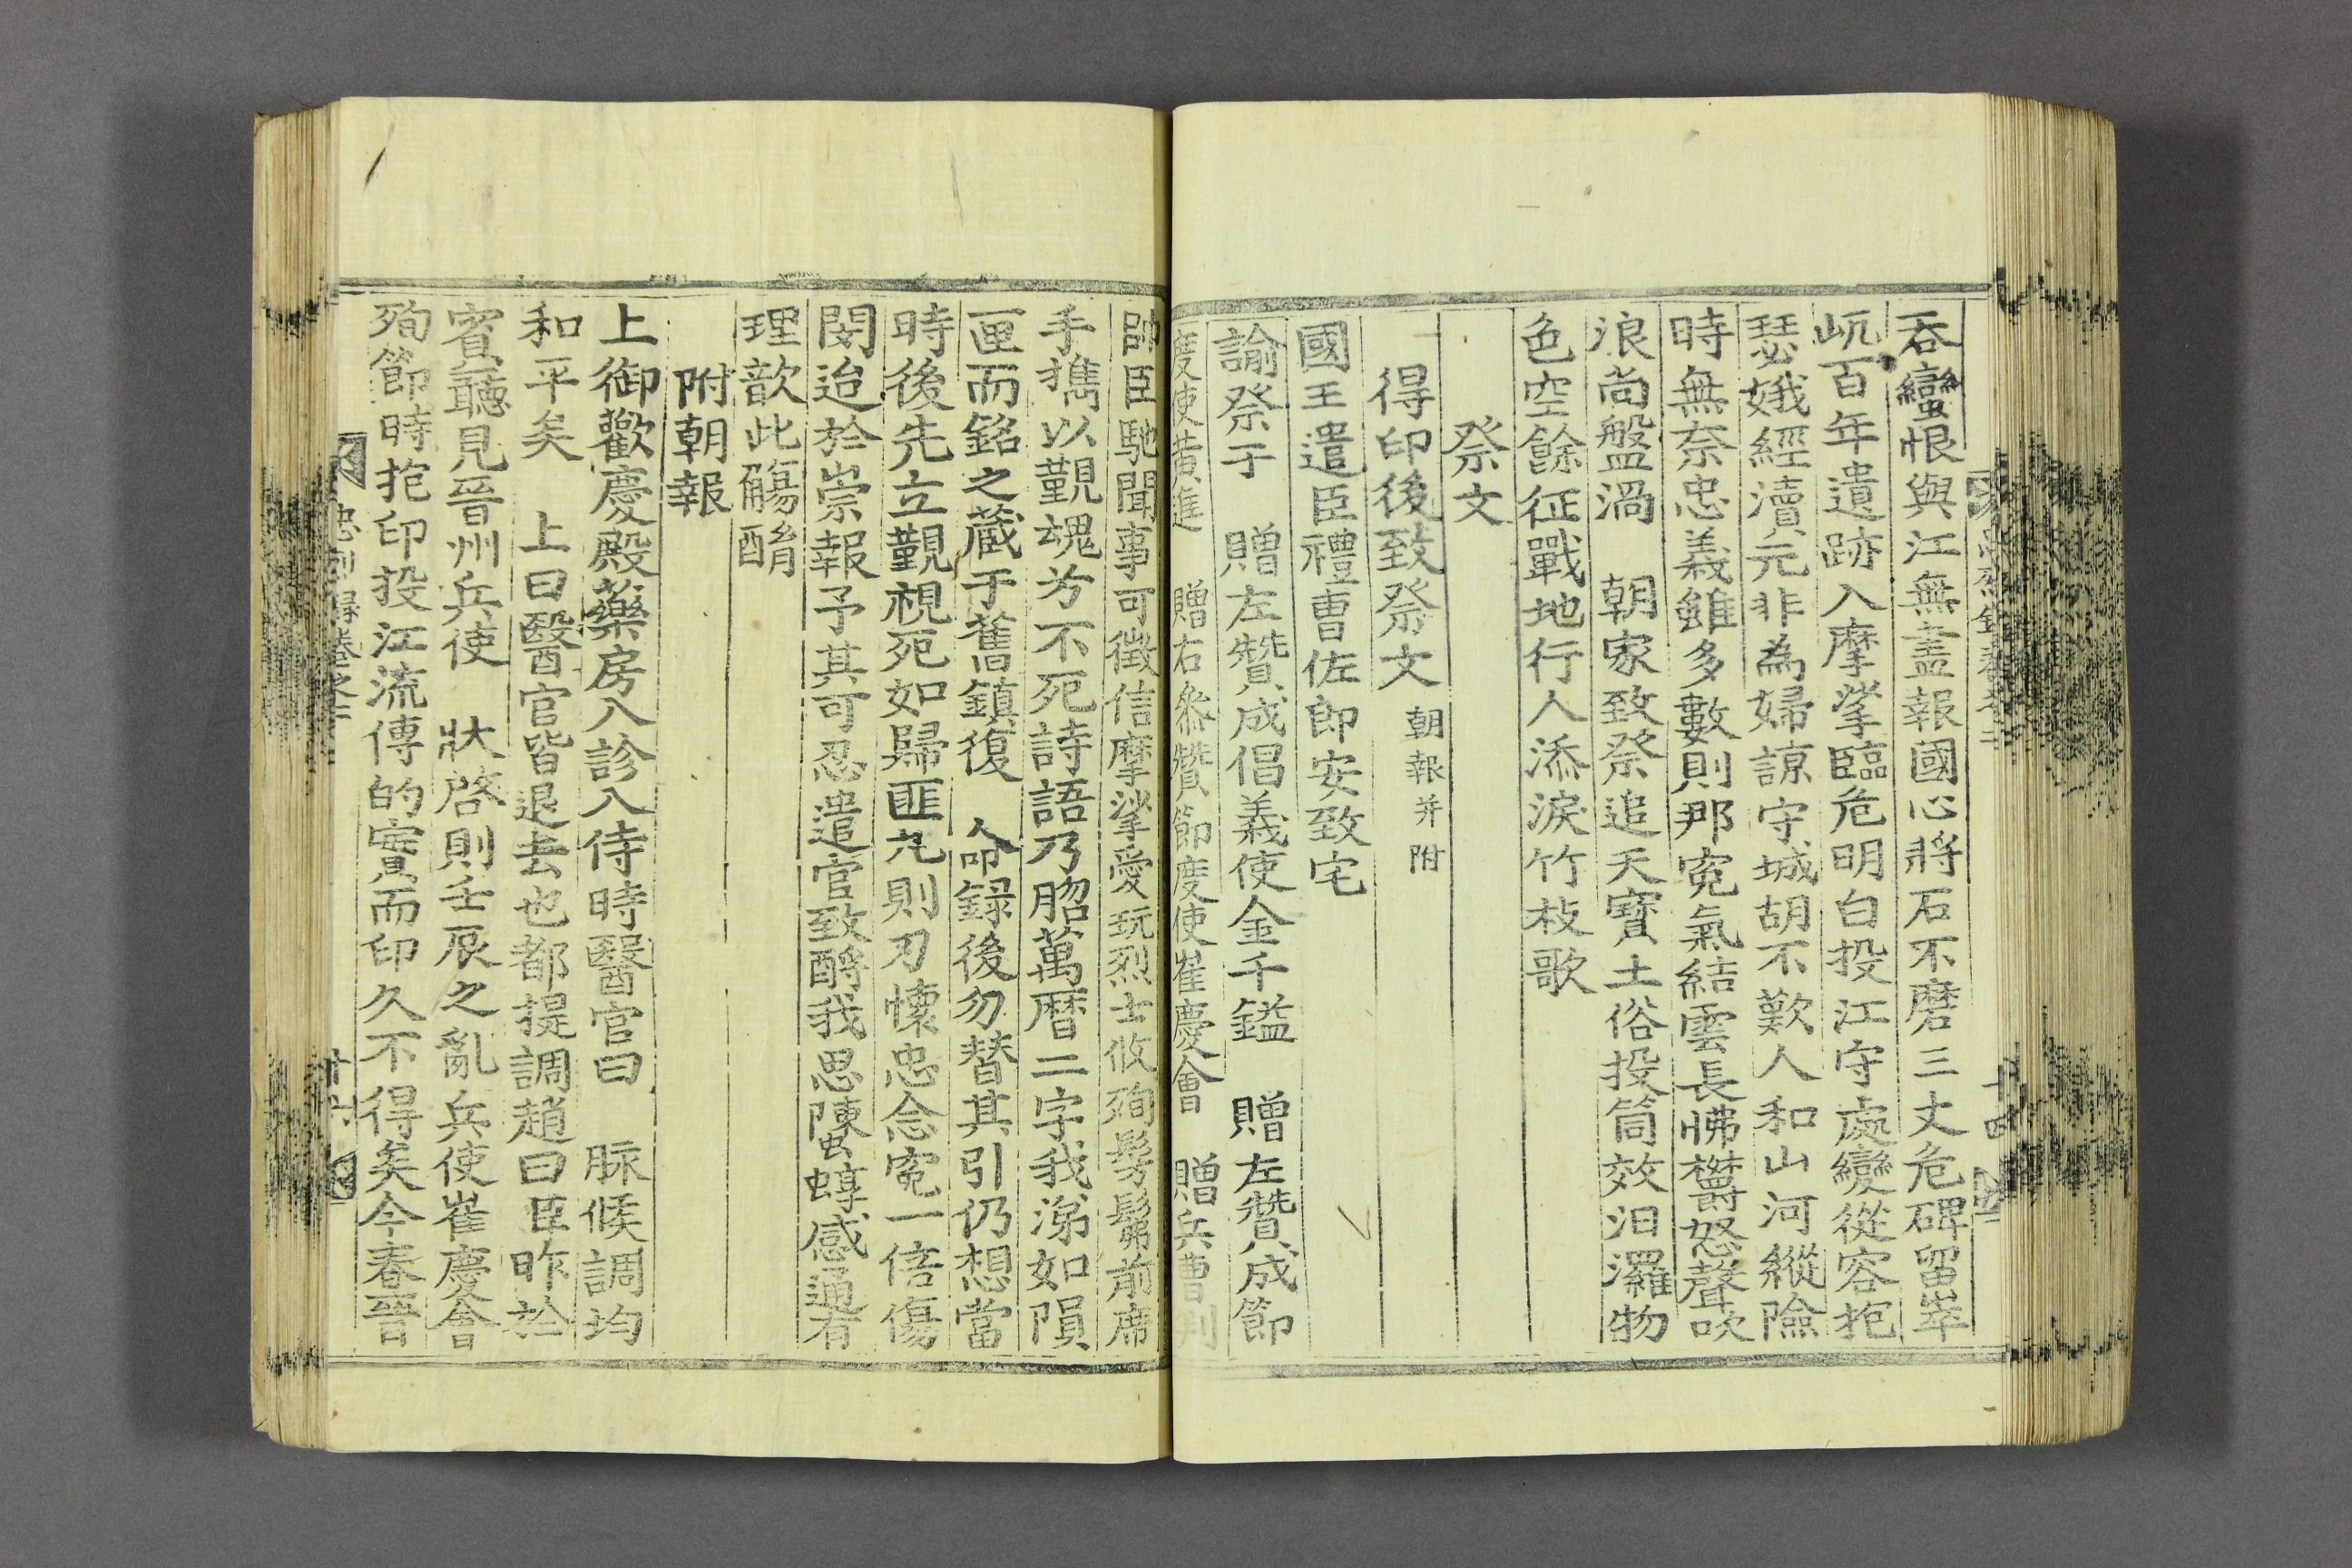 忠烈錄卷之二
十四
吞蠻恨與江無盡報國心將石不磨三丈危碑留崒
屼百年遺跡入摩挲臨危明白投江守處變從容抱
琵娥經瀆元非為婦諒守城胡不歎人和山河縱險
時無奈忠義雖多數則那寃氣結雲長怫欝怒聲吹
浪尚盤渦 朝家致祭追天寶土俗投筒效汨灑物
色空餘征戰地行人添淚竹枝歌
祭文
得印後致祭文 朝報并附
國王遣臣禮曺佐郎安致宅
諭祭于 贈左贊成倡義使金千鎰 贈左贊成節
度使黃進 贈右叅贊節度使崔慶會 贈兵曹判
帥臣馳聞事可徵信摩挲愛玩烈士攸殉髣髴前席
手擕以覲魂兮不死詩語乃脗萬曆二字我涕如隕
匣而銘之藏于舊鎮復 命錄後勿替其引仍想當
時後先立覲視死如歸匪尤則刃懷忠念寃一倍傷
閔迨於崇報予其可忍遣官致酹我思陳蟲蜳感通有
理歆此觴酳
附朝報
上御歡慶殿藥房入診入侍時醫官曰 脉候調均
和平矣 上曰醫官皆退去也都提調趙曰臣昨於
賓聽見晉州兵使 狀啓則壬辰之亂兵使崔慶會
殉節時抱印投江流傳的實而印久不得矣今春晉
忠烈錄卷之二
十六